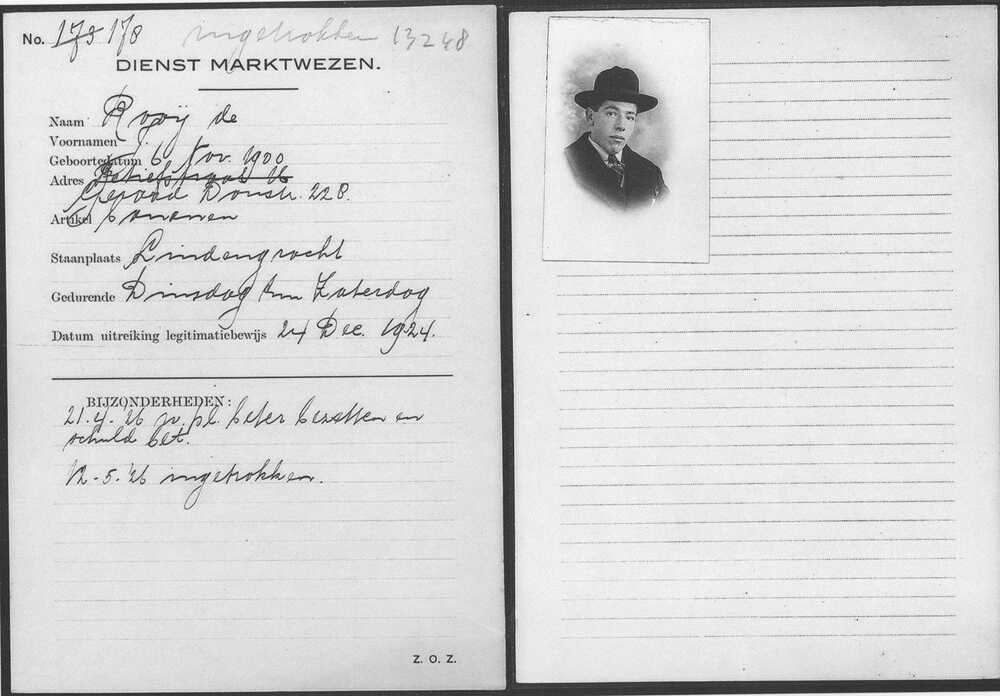 No. 173 178 ingetrokken 13248
DIENST MARKTWEZEN.
Naam Rooij de
Voornamen J.
Geboortedatum 6 Nov. 1900
Adres
Gerard Doustr. 228.
Artikel bananen
Staanplaats Lindengracht
Gedurende Dinsdag t/m Zaterdag
Datum uitreiking legitimatiebewijs 24 Dec. 1924.
BIJZONDERHEDEN:
21.4.'26 pl. beter bezetten en
schuld bet.
12-5-'26 ingetrokken.
Z. O. Z.